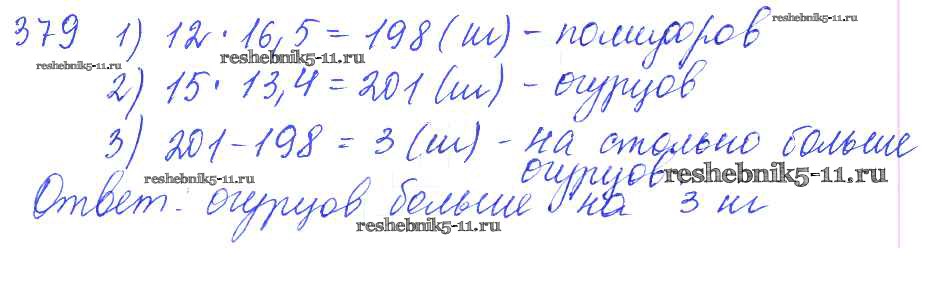 379 1) 12 · 16,5 = 198 (кг) - помидоров
reshebnik5-11.ru
reshebnik5-11.ru
reshebnik5-11.ru
2) 15 · 13,4 = 201 (кг) - огурцов
3) 201 - 198 = 3 (кг) - на столько больше
огурцов
reshebnik5-11.ru
reshebnik5-11.ru
Ответ: огурцов больше на 3 кг
reshebnik5-11.ru